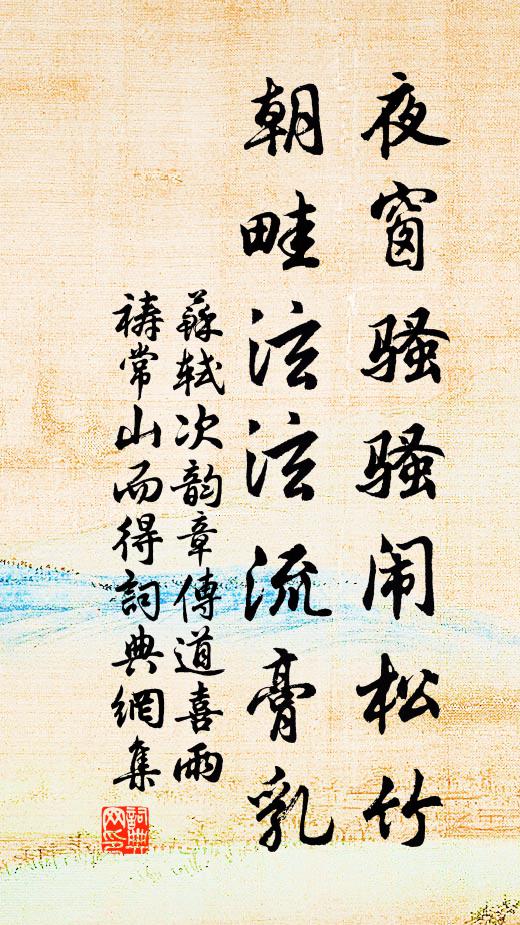 夜窗骚骚闹松竹
朝畦泫泫流膏乳
蘇軾次韵章傳道喜雨
禱常山而得詞典網集
詞典网印